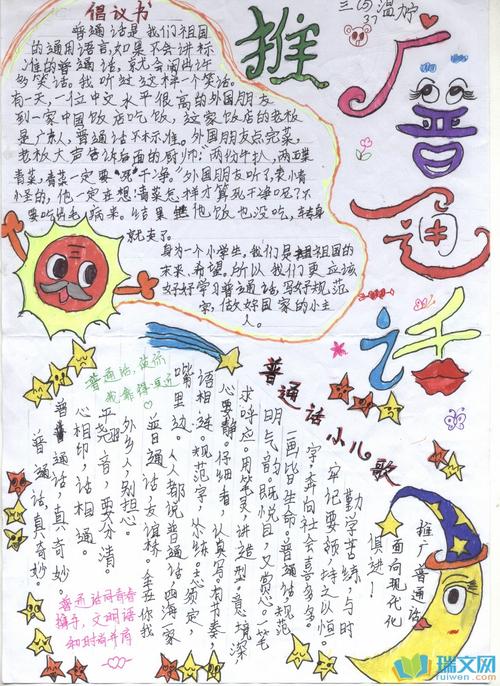 倡议书
三(5)温柠
37
推广普通话
普通话是我们祖国
的通用语言,如果不会讲标
准的普通话,就会闹出许
多笑话。我听过这样一个笑话。
有一天,一位中文水平很高的外国朋友
到一家中国饭店吃饭,这家饭店的老板
是广东人,普通话不标准。外国朋友点完菜,
老板大声告诉后面的厨师:"两份牛扒,两碟
青菜,青菜一定要"死"干净。"外国朋友听了,表情
怪怪的,他一定在想:青菜怎样才算死干净呢?不
要吃出毛病来。结果他饭也没吃,转身
就走了。
身为一个小学生,我们是祖国的
未来、希望,所以我们更应该
好好学习普通话,写好规范
字,做好国家的小主
人。
普通话,
普通话小儿歌
普通话,真奇妙。
普通话,真奇妙,
心相印,话相通。
外乡人,别担心。
平翘音,要分清。
普通话,友谊桥。
嘴里边。人人都说普通话,四海家
语相连。规范字,
心要静。仔细看,认真写,有节奏,
求呼应。用笔
明气韵。既悦目,又赏心。一笔
一画皆生命。普通话、规范
字,奔向社会喜多多。
牢记要领,持之以恒。
勤学苦练,与时
俱进!
面向现代化
推广普通话
普通话同青春
携手,文明语
和时尚并肩
瑞文网
ruiwen.com